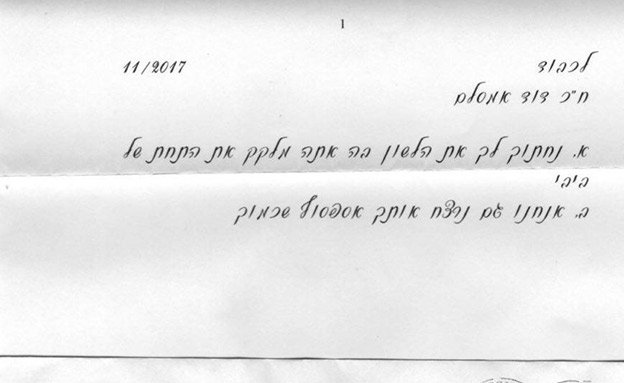 1
לכבוד 11/2017
ח"כ דוד אמסלם
א. נחתוך לך את הלשון בה אתה מלקק את התחת של
ביבי
ב. אנחנו גם נרצח אותך אספסוף שכמוך